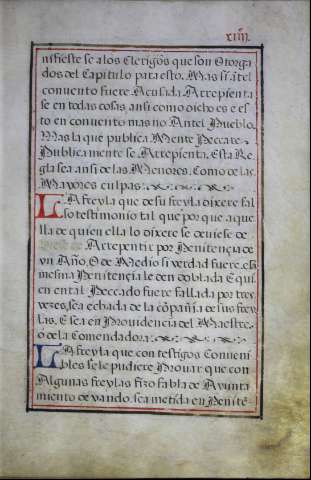 xiiij.
nifieste se a los Clerigos que son Otorga
dos del Capitulo para esto. Mas si ãtel
convento fuere Acusada Arrepienta
se en todas cosas, ansi como dicho es e es
to en convento mas no Antel Pueblo
Mas la que publica Mente Peccare
Publicamente se Arrepienta, Esta Re
gla sea ansi de las Menores, Como de las
Mayores culpas
LA freyla que de su freyla dixere fal
so testimonio tal que por que aque
lla de quien ella lo dixere se oviese de
Arrepentir por Penitencia de
vn Año, O de Medio si verdad fuere, essa
mesma Penitencia le den doblada E qui
en en tal Peccado fuere fallada por tres
vezes, sea echada de la cõpañia de sus frey
las, E sea en Providencia del Maestre
o de la Comendadora
LA freyla que con testigos Conveni
bles se le pudiere Provar que con
Algunas freylas fizo fabla de Ayunta
miento de vando, sea metida en Penitẽ